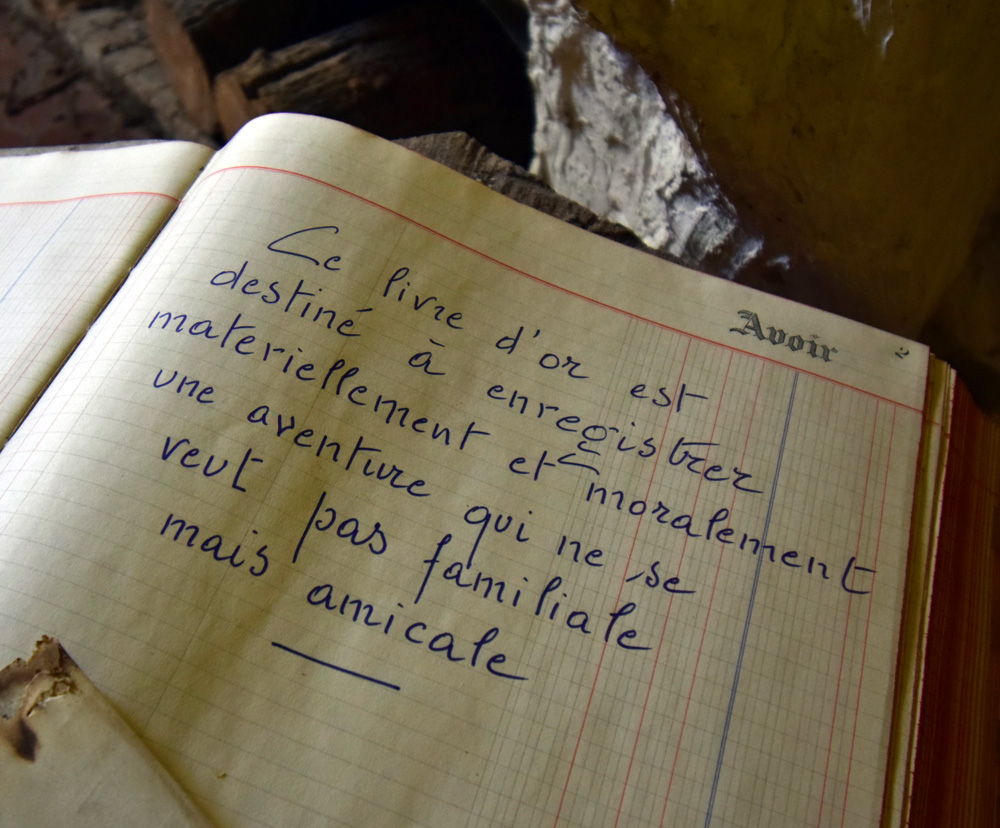 Avoir 2
Ce livre d'or est
destiné à enregistrer
materiellement et moralement
une aventure qui ne se
veut pas familiale
mais amicale